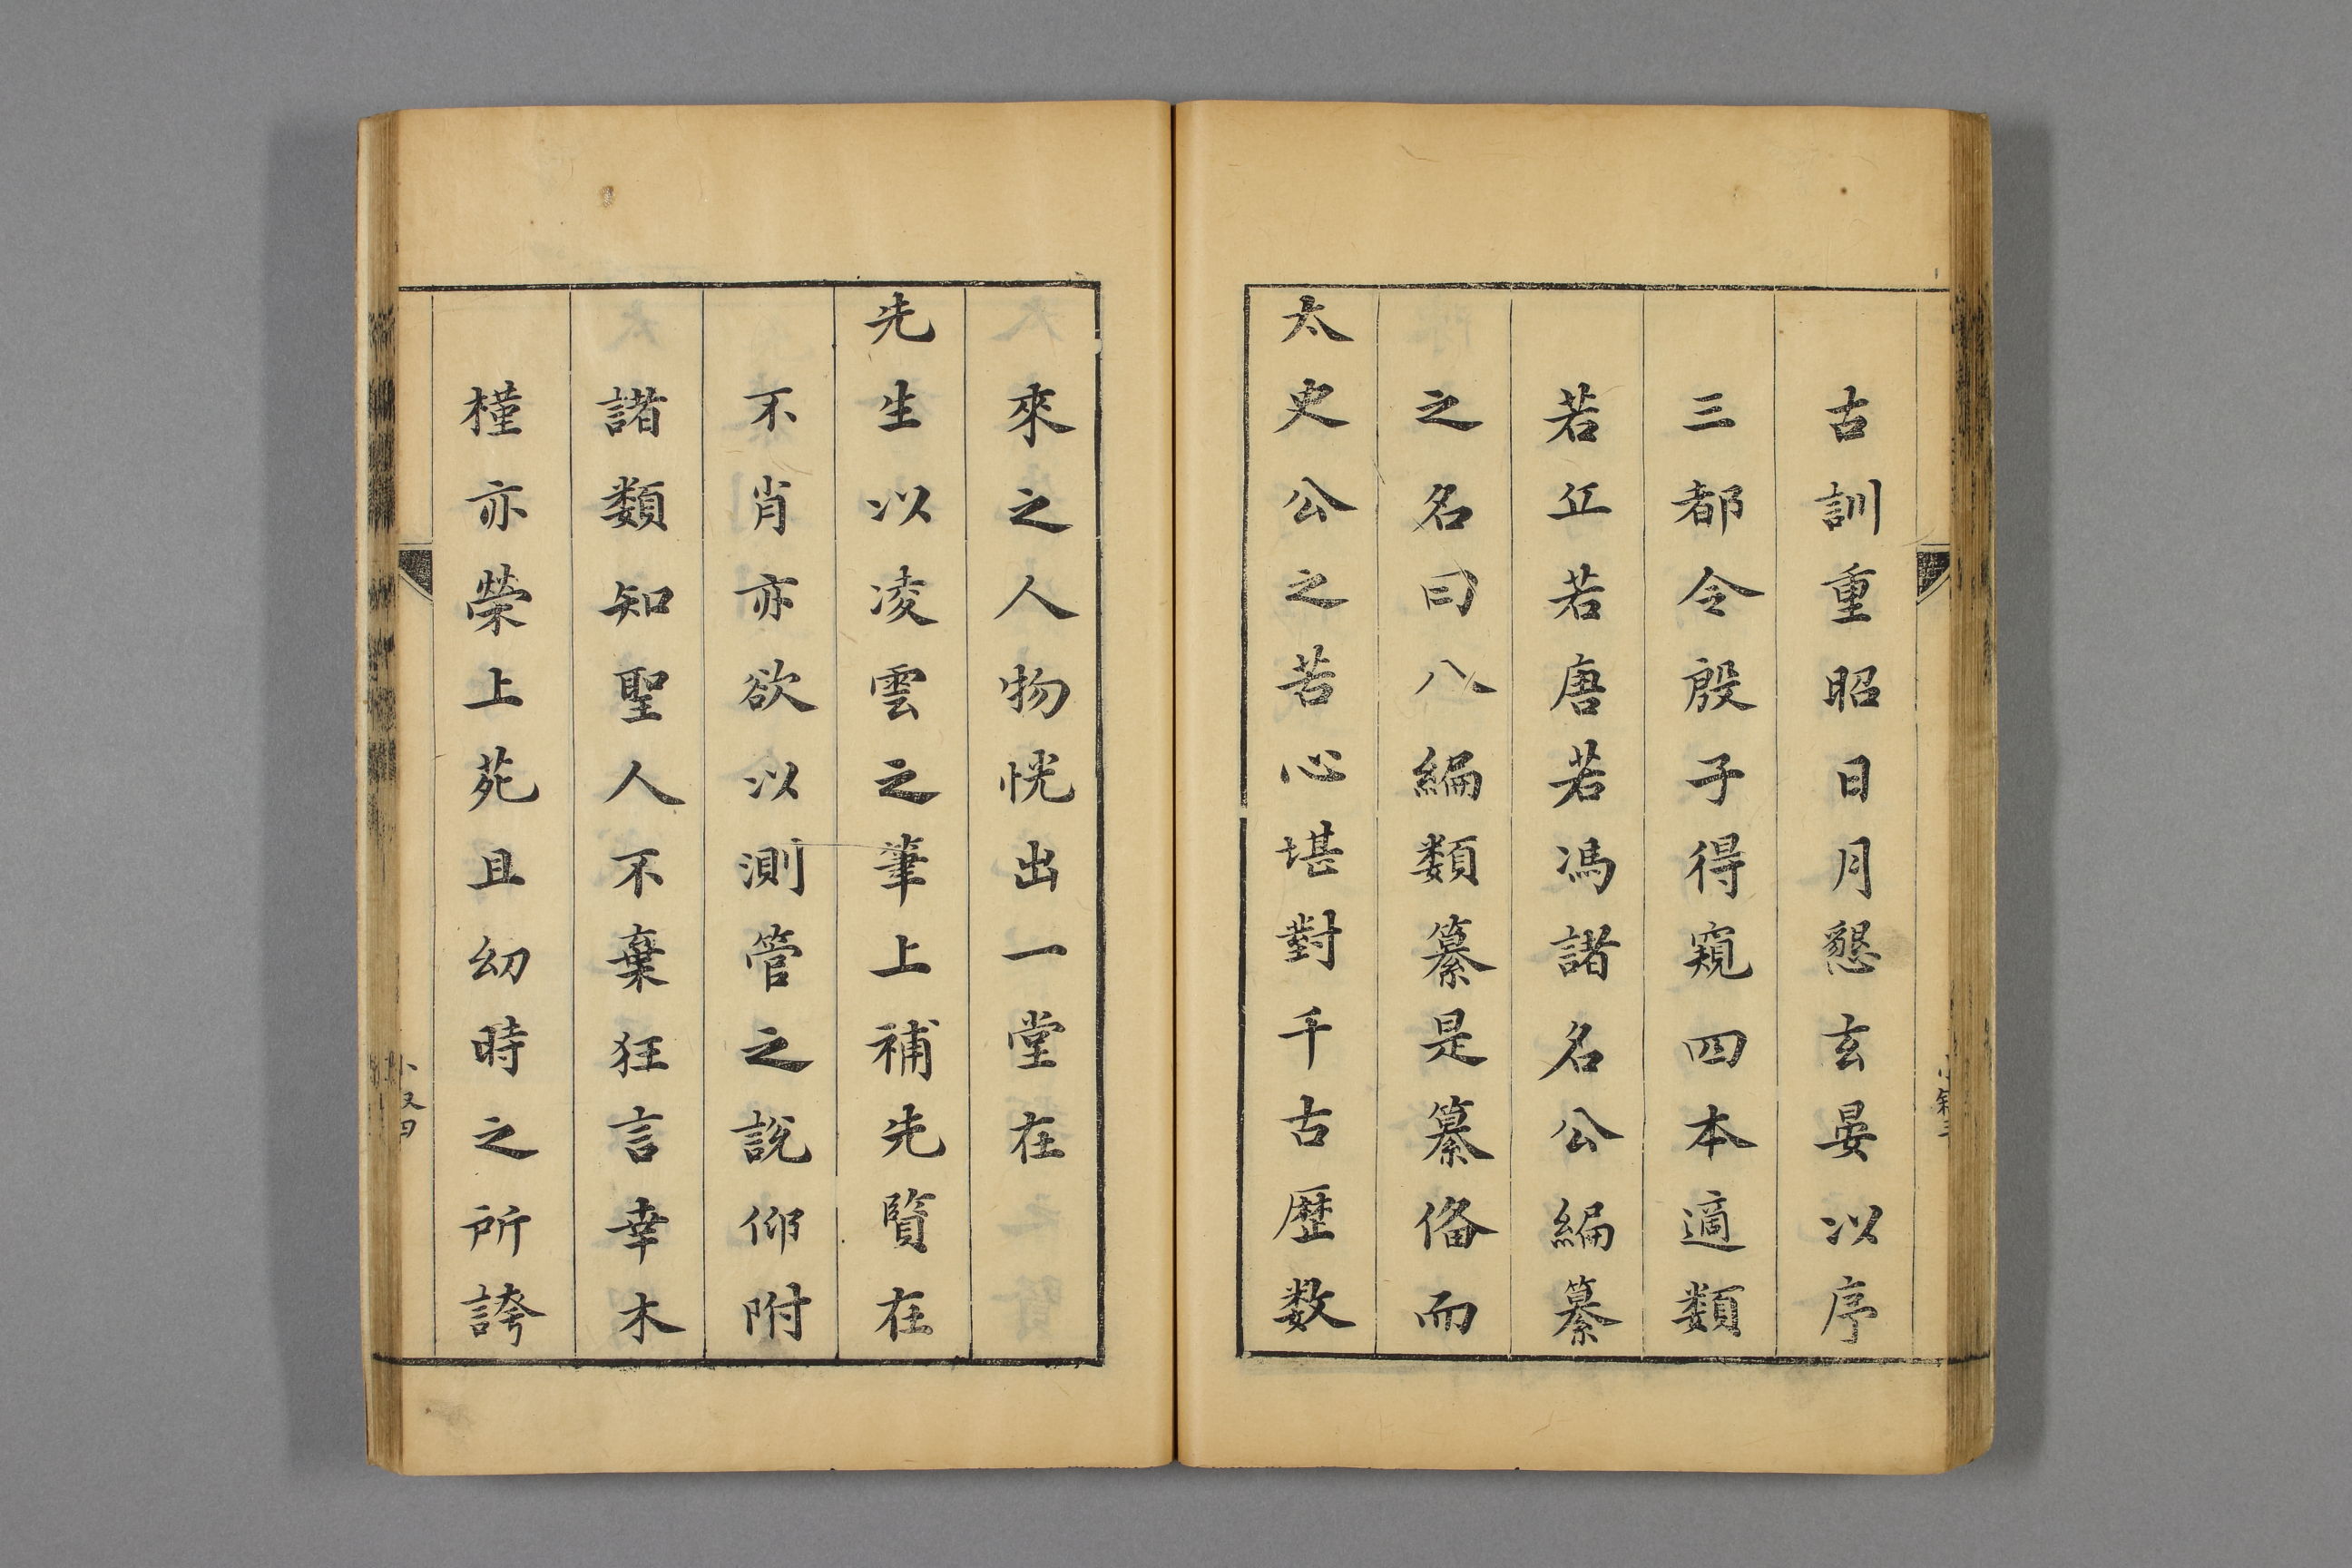 古訓重昭日月懇玄晏以序
三都令殷子得窺四本適類
若丘若唐若馮諸名公編纂
之名曰八編類纂是纂俻而
太史公之苦心堪對千古歷数
來之人物恍出一堂在
先生以凌雲之筆上補先覽在
不肖亦欲以測管之說仰附
諸類知聖人不棄狂言幸木
槿亦榮上苑且幼時之所誇